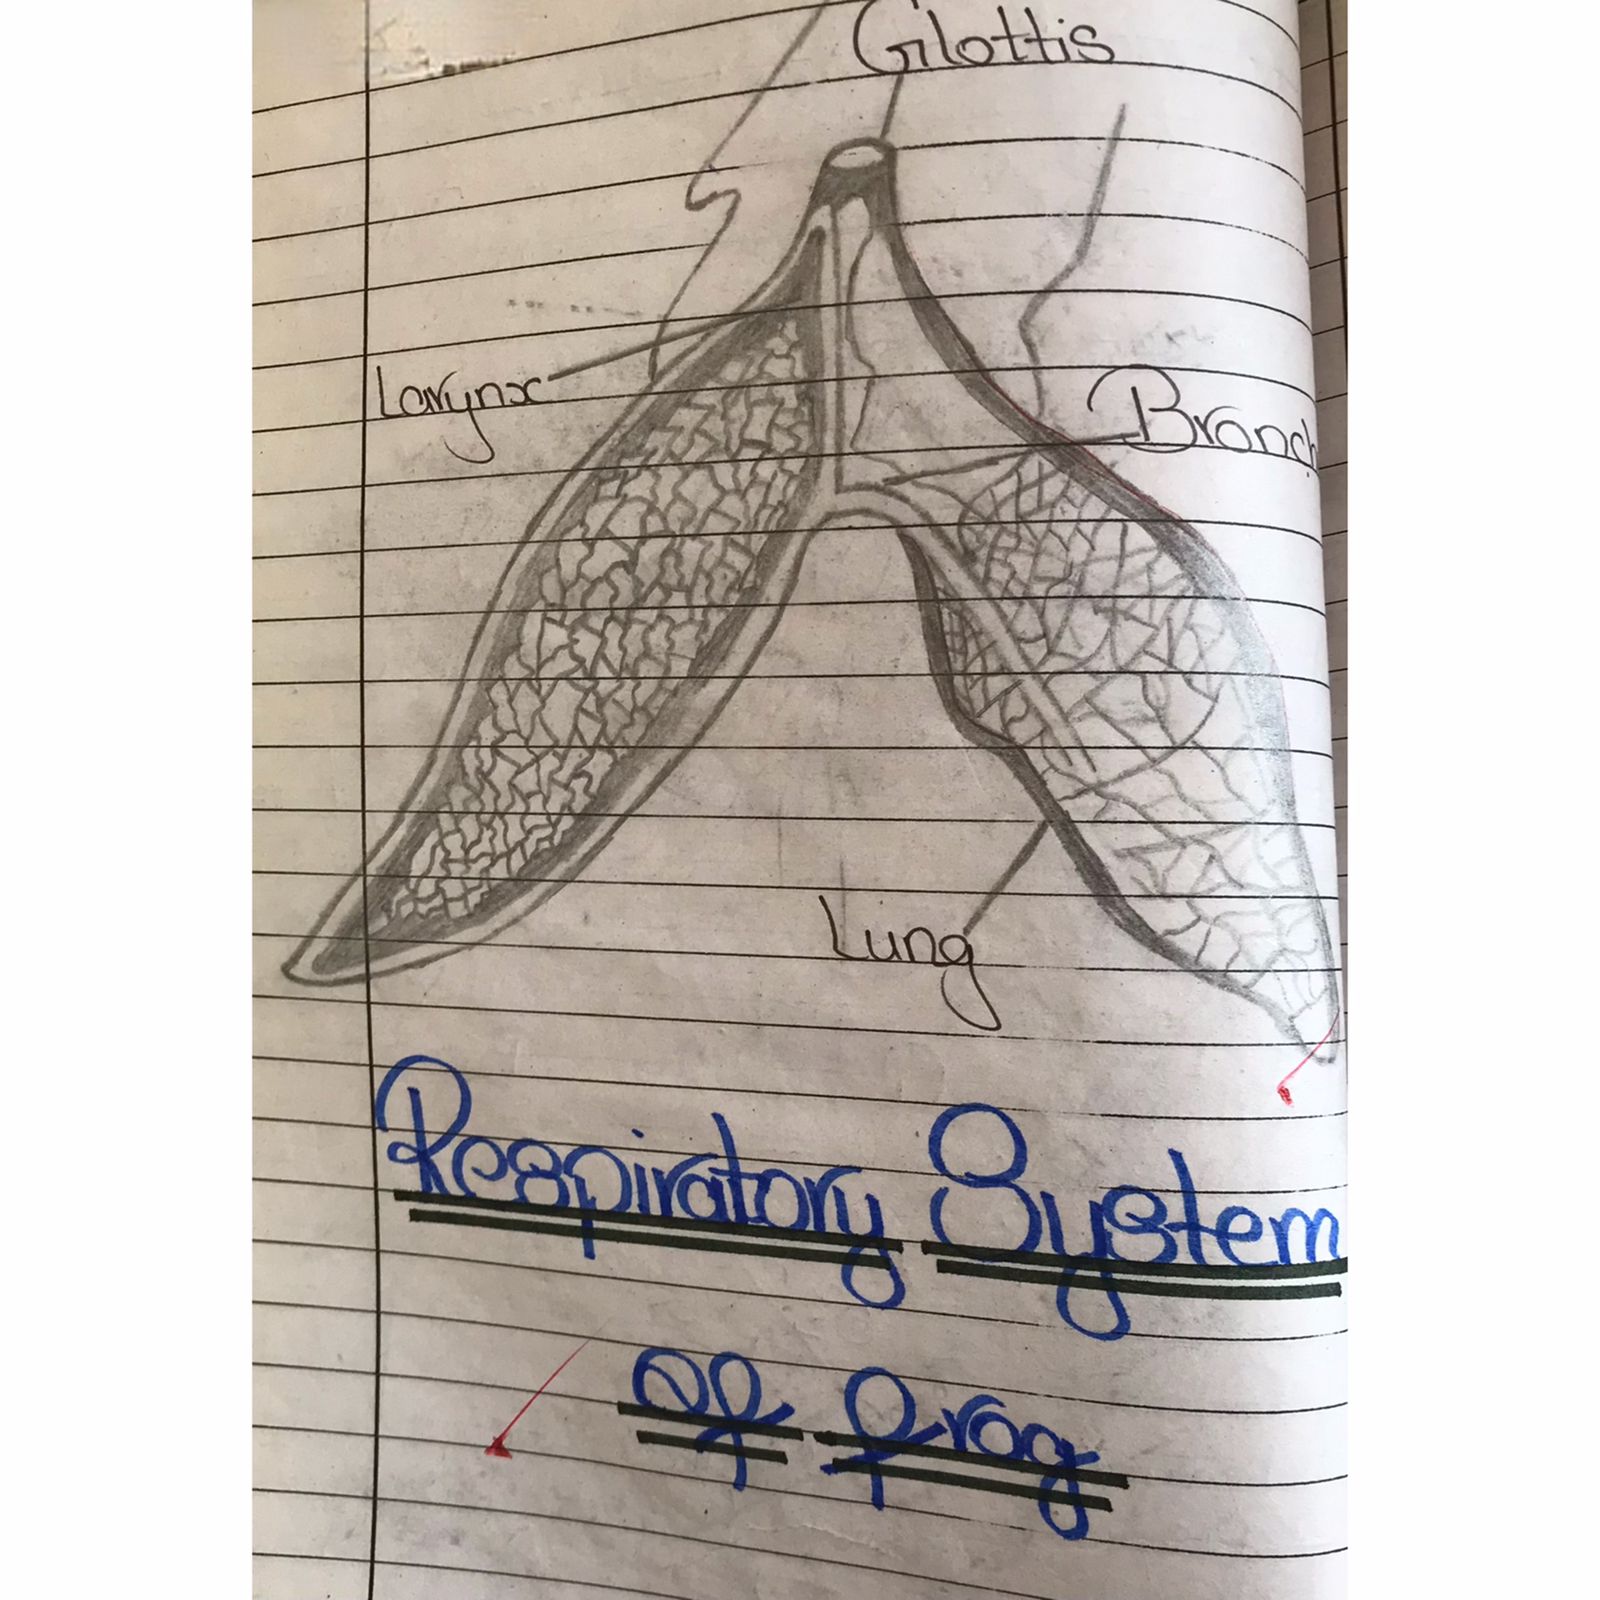 Glottis
Larynx
Bronch
Lung
Respiratory System
of frog